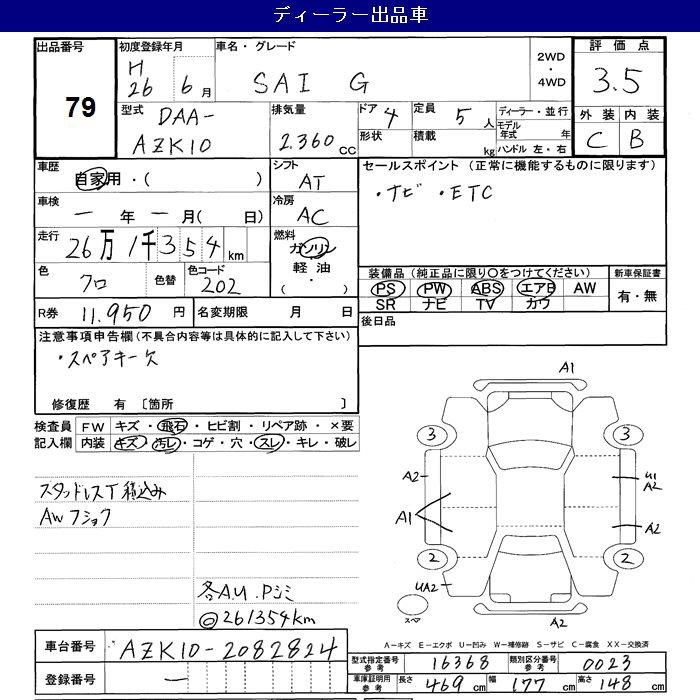 ディーラー出品車
出品番号 79
初度登録年月 H 26 6月
車名・グレード SAI G
2WD・4WD
評価点 3.5
外装 C 内装 B
型式 DAA-AZK10
排気量 2.360 cc
ドア 4 定員 5人
形状 積載 kg
ディーラー・並行
モデル年式 年
ハンドル 左・右
車歴 自家用・( )
シフト AT
セールスポイント (正常に機能するものに限ります)
・ナビ ・ETC
車検 ー年ー月( 日)
冷房 AC
走行 26万1千354km
燃料 ガソリン 軽油 ( ・ )
色 クロ 色替 色コード 202
装備品 (純正品に限り○をつけてください) 新車保証書
PS PW ABS エアB AW 有・無
SR ナビ TV カワ
R券 11,950円 名変期限 月 日
後日品
注意事項申告欄(不具合内容等は具体的に記入して下さい)
・スペアキー欠
修復歴 有 〔箇所 〕
検査員 FW キズ・飛石・ヒビ割・リペア跡・×要
記入欄 内装 キズ・汚レ・コゲ・穴・スレ・キレ・破レ
スタッドレスT積込み
AWフショク
各A.U.Pシミ
◎261354km
A1
3 3
A2 U1 A2
A1 A2
2 2
UA2
スペア A2
A-キズ E-エクボ U-凹み W-補修跡 S-サビ C-腐食 XX-交換済
車台番号 AZK10-2082824
登録番号 ー
型式指定番号 参考 16368 類別区分番号 参考 0023
車庫証明用 参考 長さ 469cm 幅 177cm 高さ 148cm